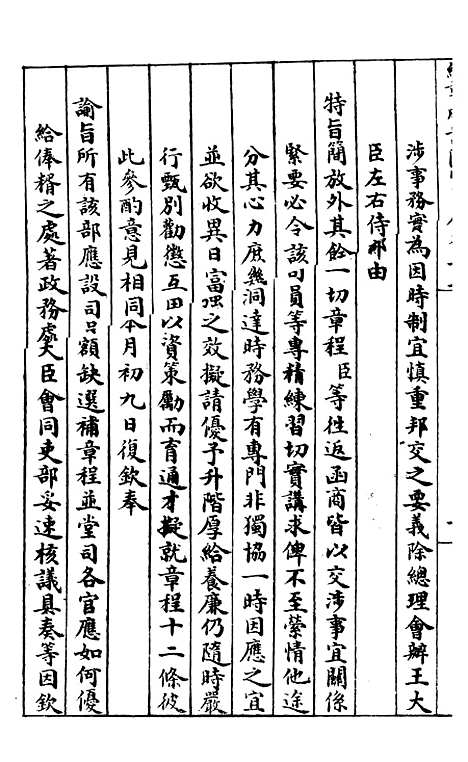 涉事務實為因時制宜慎重邦交之要義除總理會辦王大
臣左右侍郎由
特旨簡放外其餘一切章程臣等往返函商皆以交涉事宜關係
緊要必令該司員等專精練習切實講求俾不至縈情他途
分其心力庶幾洞達時務學有專門非獨協一時因應之宜
並欲收異日富強之效擬請優予升階厚給養廉仍隨時嚴
行甄別勸懲互用以資策勵而育通才擬就章程十二條彼
此參酌意見相同本月初九日復欽奉
諭旨所有該部應設司員額缺選補章程並堂司各官應如何優
給俸糈之處著政務處大臣會同吏部妥速核議具奏等因欽